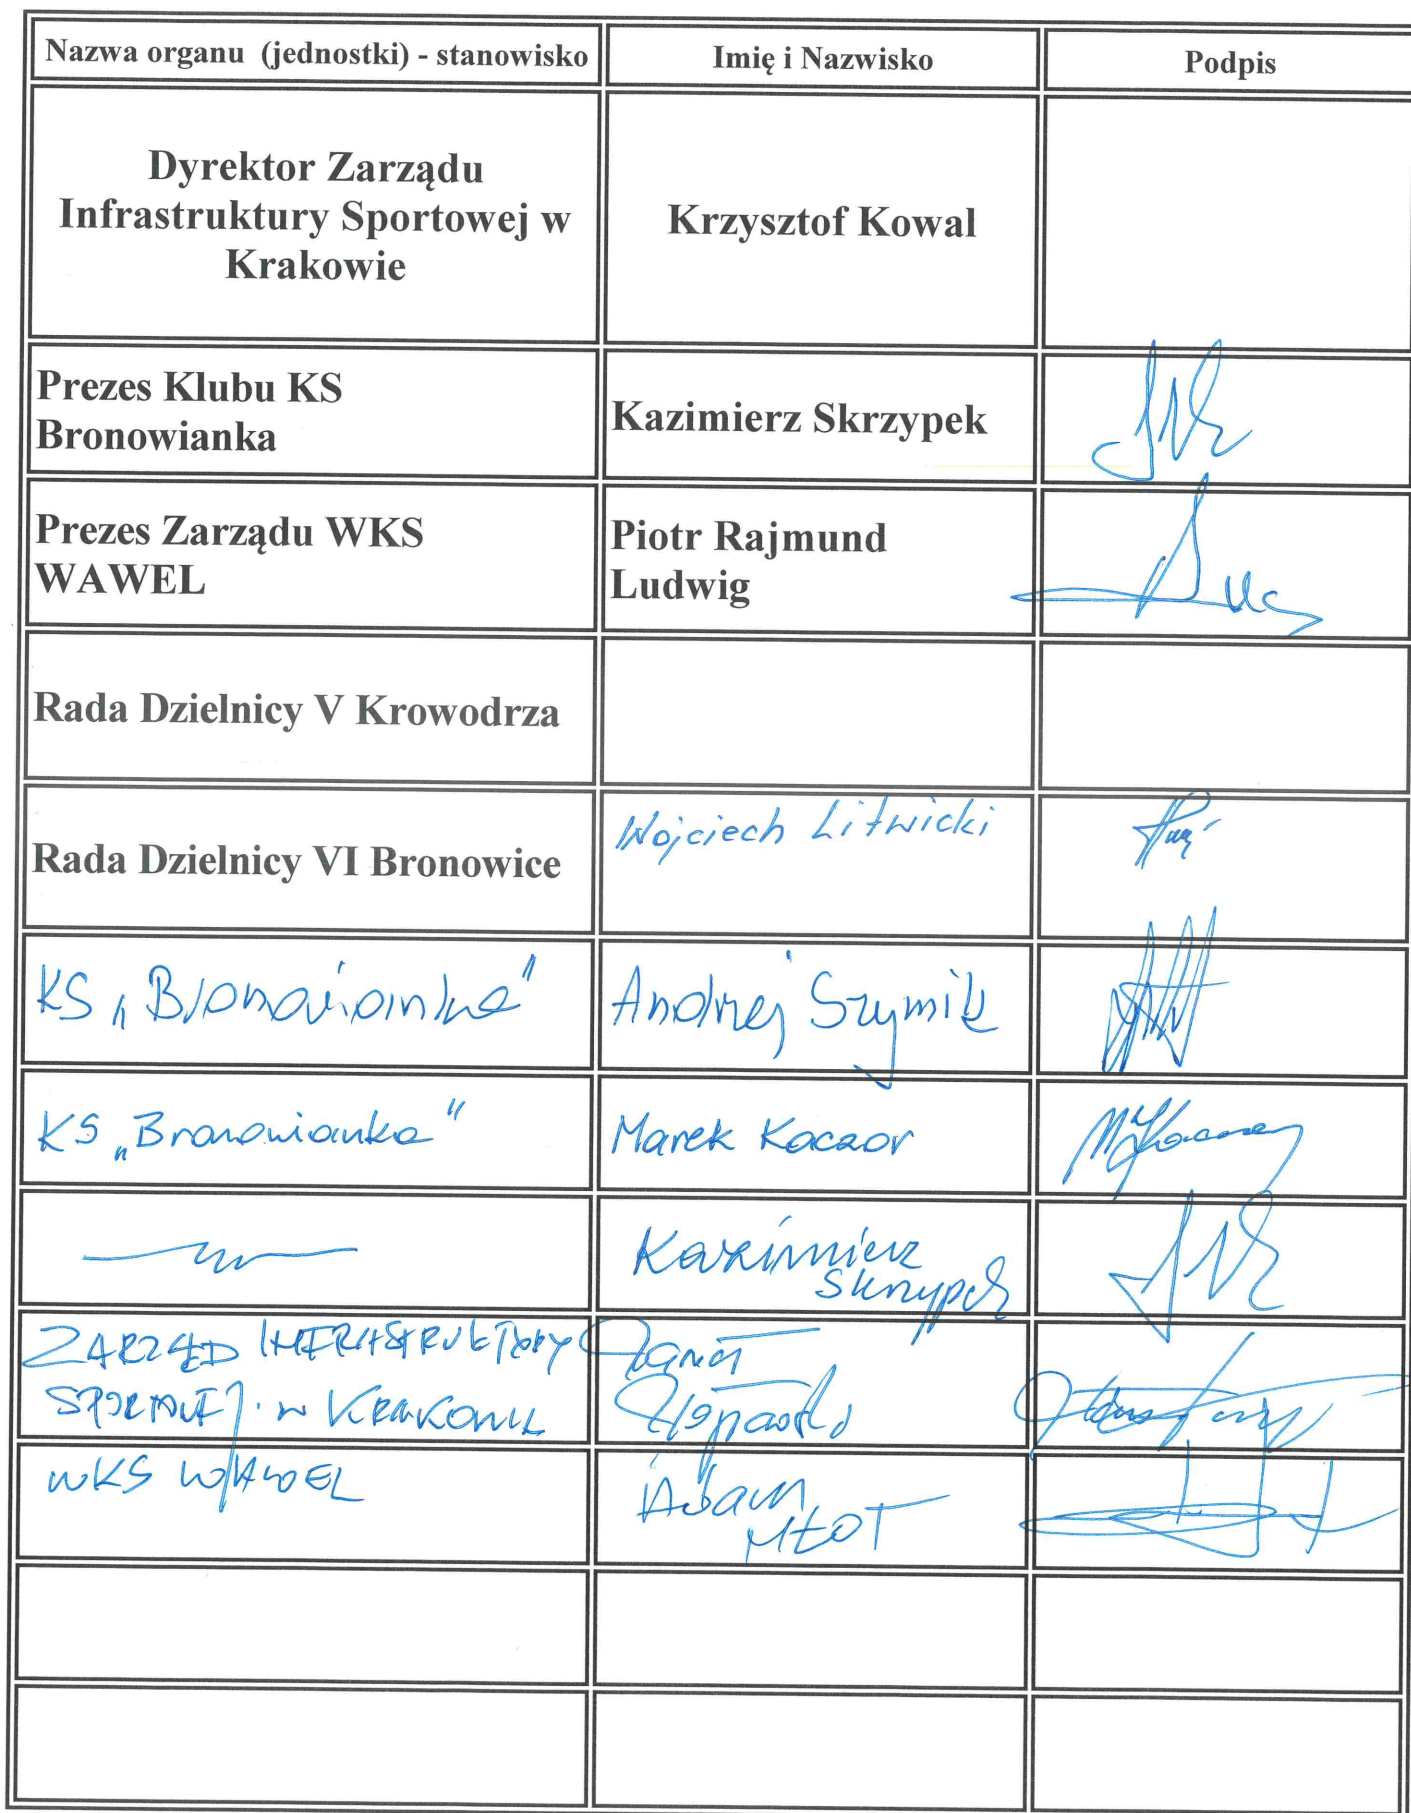 Nazwa organu (jednostki) - stanowisko
Imię i Nazwisko
Podpis
Dyrektor Zarządu
Infrastruktury Sportowej w
Krakowie
Krzysztof Kowal
Prezes Klubu KS
Bronowianka
Kazimierz Skrzypek
Prezes Zarządu WKS
WAWEL
Piotr Rajmund
Ludwig
Rada Dzielnicy V Krowodrza
Rada Dzielnicy VI Bronowice
Wojciech Litwicki
KS „Bronowianka"
Andrzej Szymik
KS „Bronowianka"
Marek Kaczor
Kazimierz
Skrzypek
ZARZĄD INFRASTRUKTURY
SPORTOWEJ w KRAKOWIE
WKS WAWEL
Adam
MŁOT